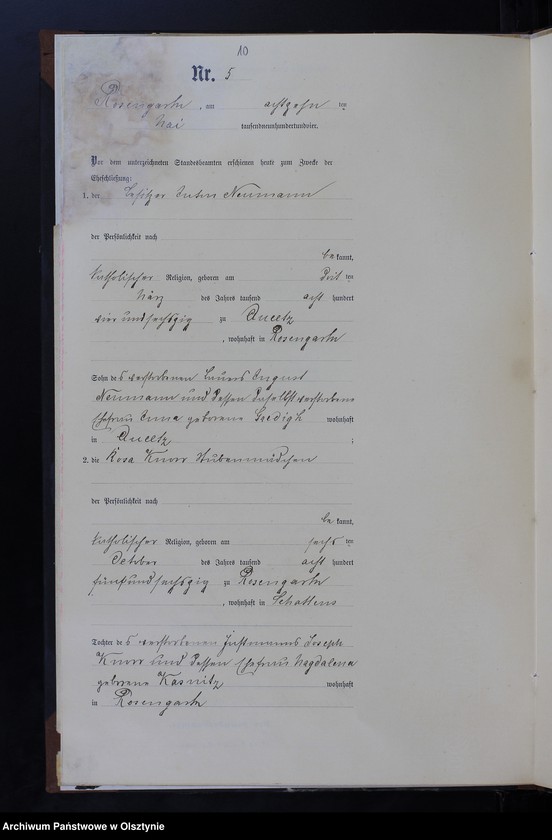 10
Nr. 5
Rosengarth, am achtzehn ten
Mai tausendneunhundertundvier.
Vor dem unterzeichneten Standesbeamten erschienen heute zum Zwecke der
Eheschließung:
1. der Besitzer Anton Neumann
der Persönlichkeit nach
be kannt,
katholischer Religion, geboren am drit ten
März des Jahres tausend acht hundert
vier und sechszig zu
, wohnhaft in Rosengarth
Sohn des verstorbenen Bauers August
Neumann und dessen daselbst verstorbene
Ehefrau Anna geborene wohnhaft
in ;
2. die Rosa Knorr Stubenmädchen
der Persönlichkeit nach
be kannt,
katholischer Religion, geboren am sechs ten
October des Jahres tausend acht hundert
fünf und sechszig zu Rosengarth
, wohnhaft in Schattens
Tochter des verstorbenen Instmanns Joseph
Knorr und dessen Ehefrau Magdalena
geborene Kasnitz wohnhaft
in Rosengarth
Archiwum Państwowe w Olsztynie